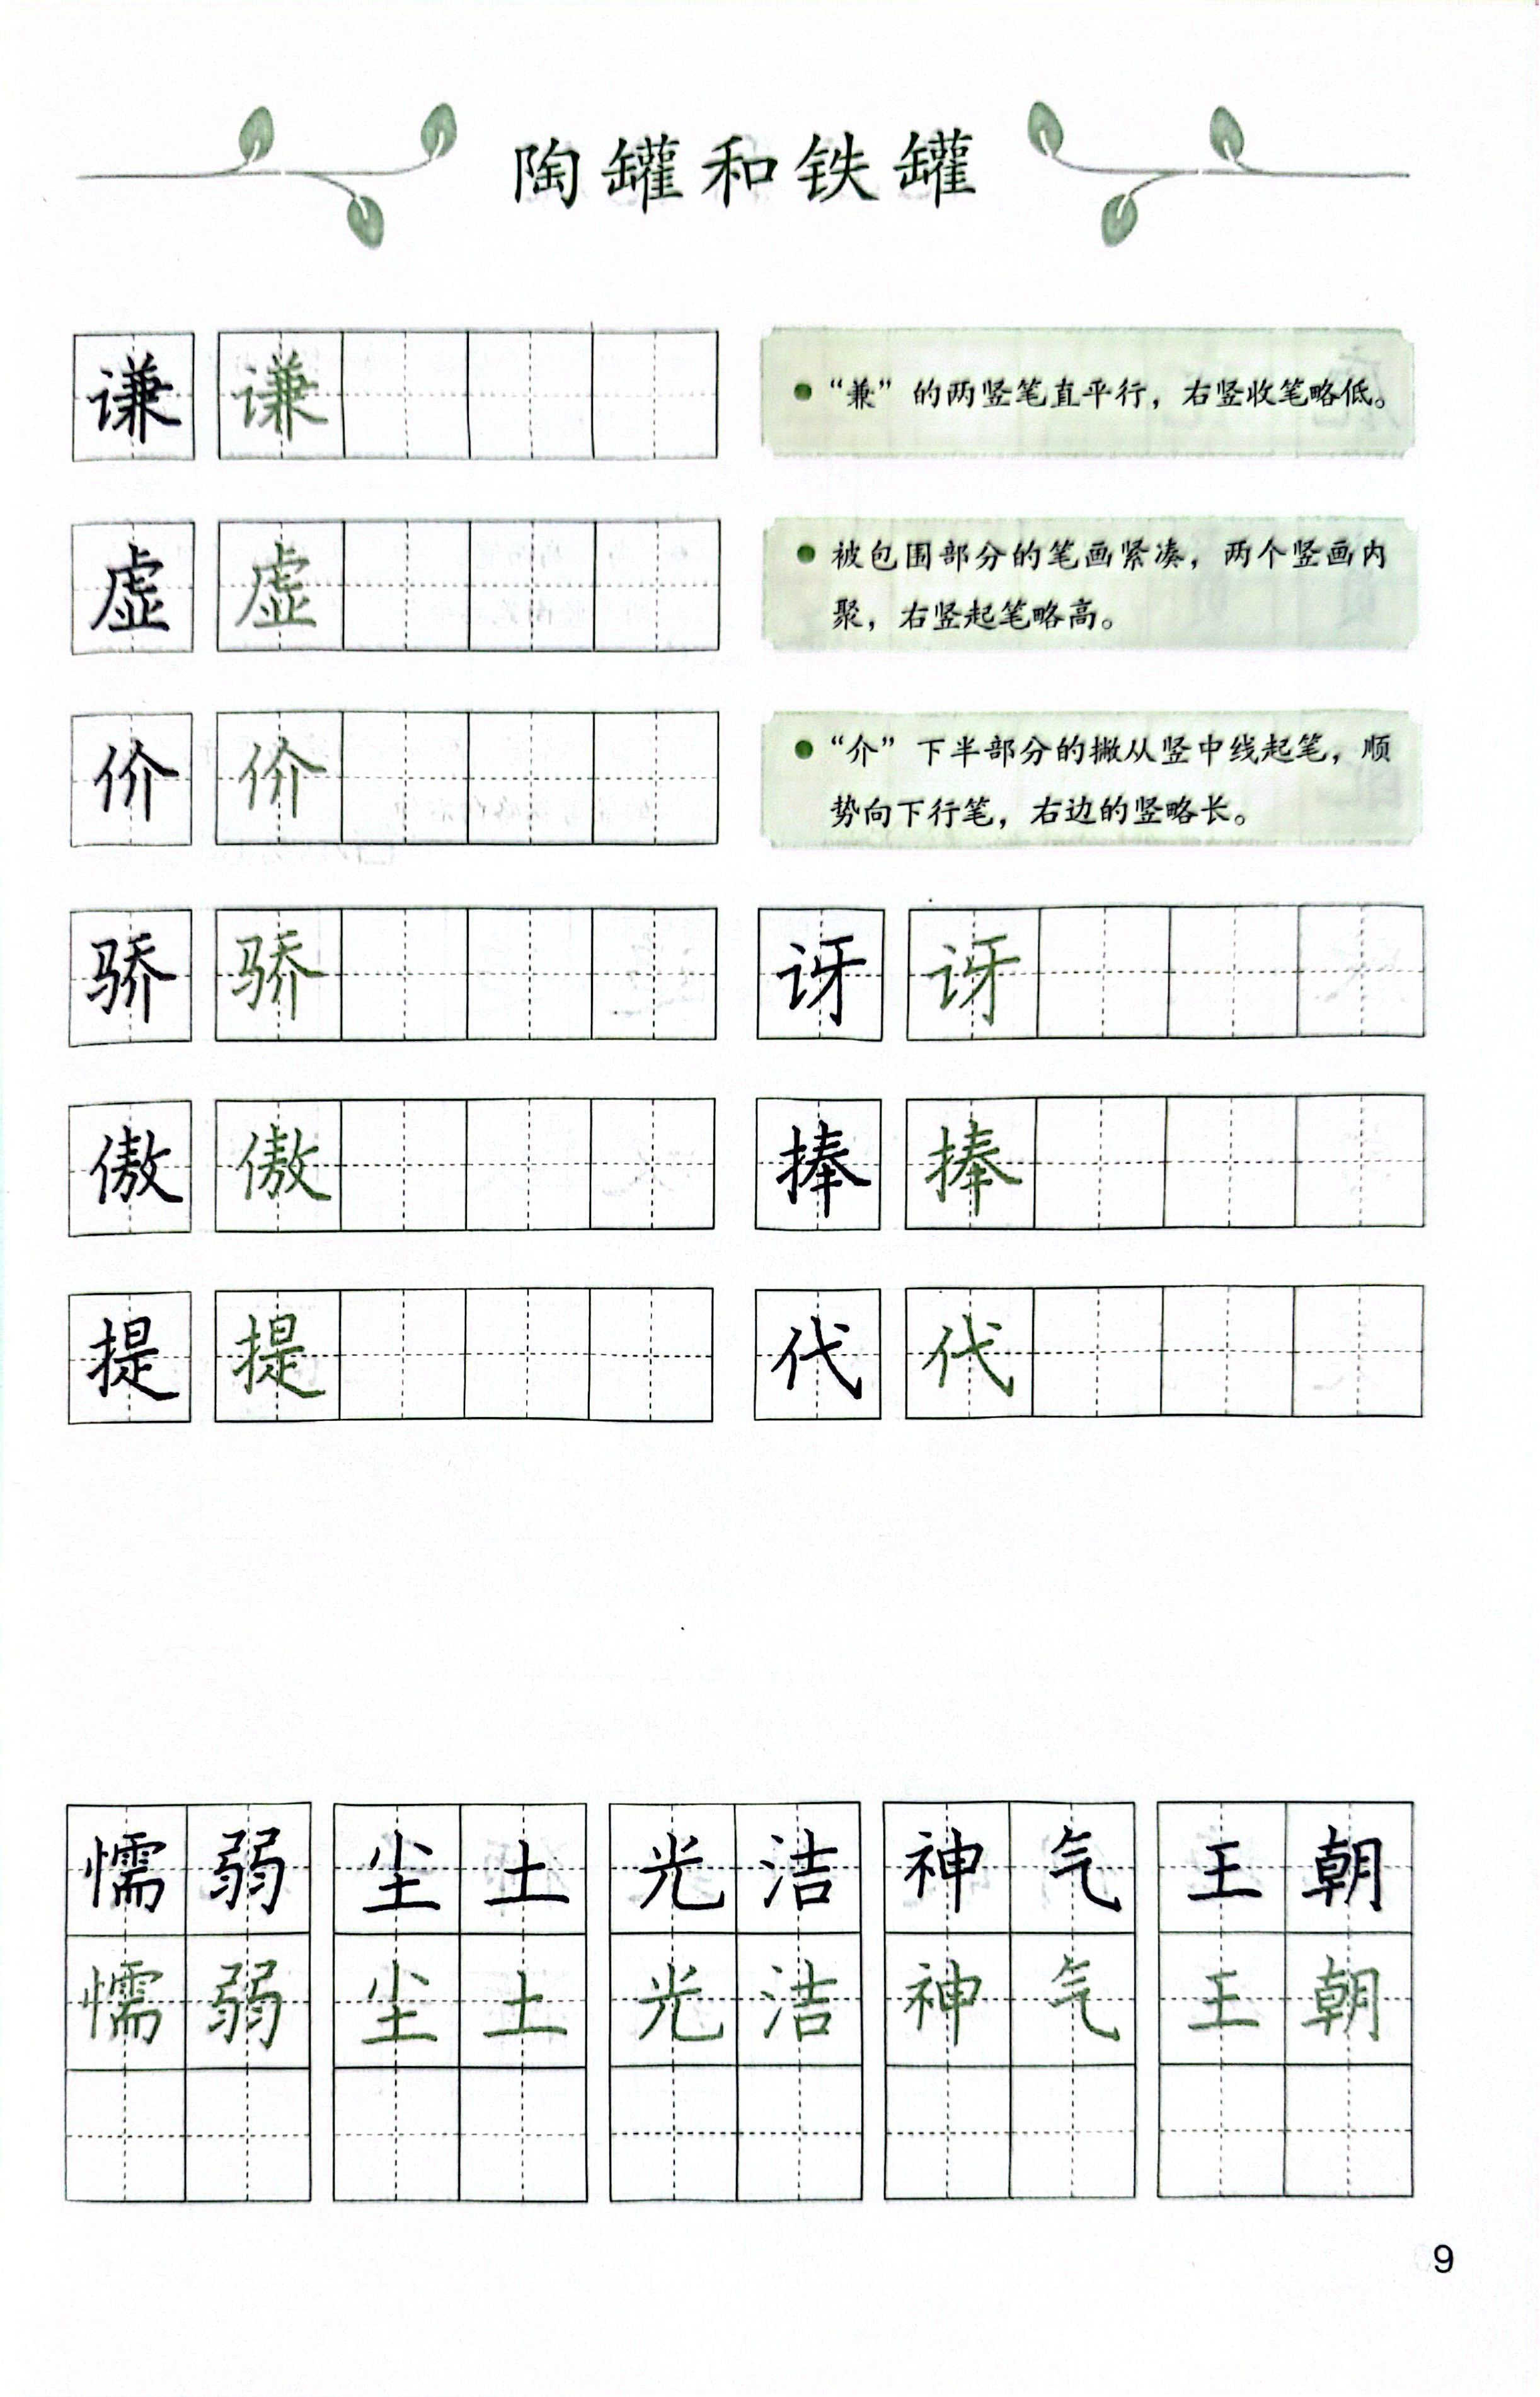 陶罐和铁罐
谦 谦
“兼”的两竖笔直平行，右竖收笔略低。
虚 虚
被包围部分的笔画紧凑，两个竖画内
聚，右竖起笔略高。
价 价
“介”下半部分的撇从竖中线起笔，顺
势向下行笔，右边的竖略长。
骄 骄 讶 讶
傲 傲 捧 捧
提 提 代 代
懦弱 尘土 光洁 神气 王朝
懦弱 尘土 光洁 神气 王朝
9